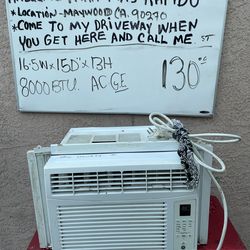 *LOCATION-MAYWOOD CA. 90270
*COME TO MY DRIVEWAY WHEN
YOU GET HERE AND CALL ME ST
16.5W x 15D x 13H
8000 BTU. AC GE
130